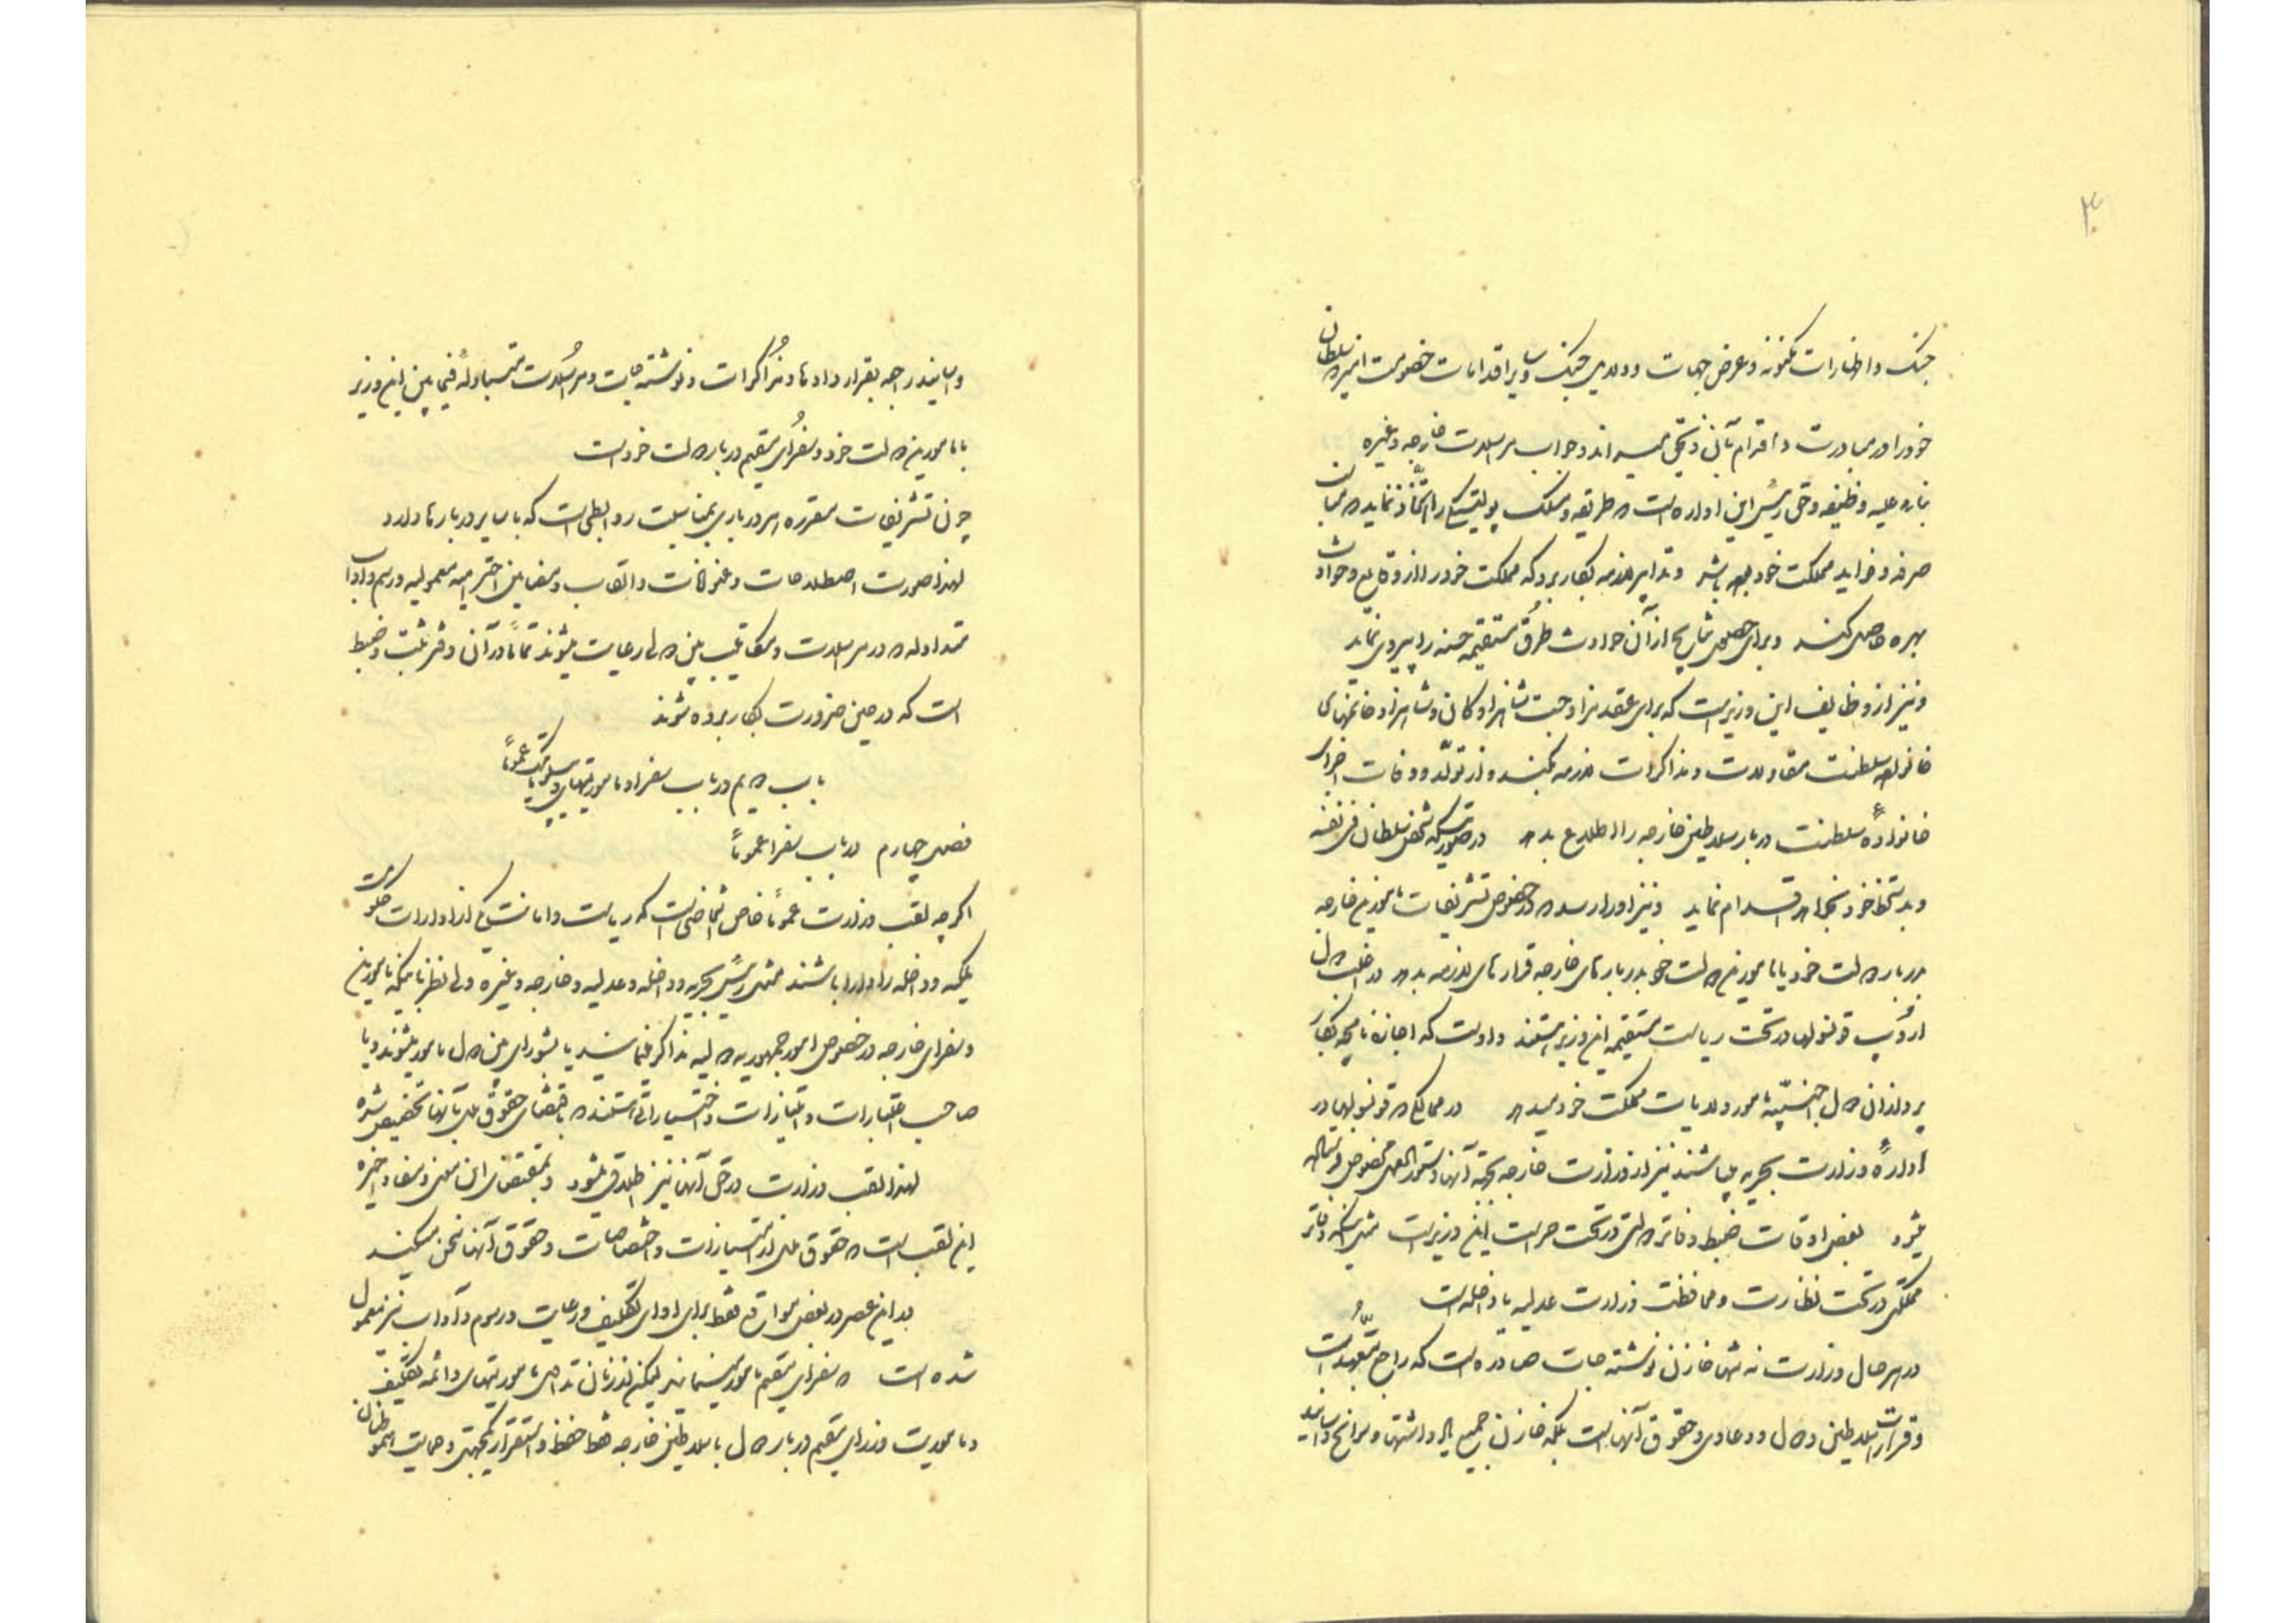 ۳۰
جنک و اظهارات مکنونه و عرض جهات و دواعی جنک و سایر اقدامات خصومت امیز سلطان
خود را در مبادرت و اقدام بآن ذی حق میداند و جواب مراسلات خارجه و غیره
بناء علیه وظیفه و حق رئیس این اداره است که طریقه و مسلک پولیتیکی را اتخاذ نماید که مبنای
صرفه و فواید مملکت خود باشد و تدابیر لازمه بکار برد که مملکت خود را از وقایع و حوادث
بهره حاصل کند و برای حصول نتایج از آن حوادث طرق مستقیمه حسنه را پیروی نماید
و نیز از وظایف این وزیر است که برای عقد مزاوجت شاهزادکان و شاهزاده خانمهای
خانواده سلطنت مقاولات و مذاکرات لازمه بکند و از تولّد و وفات اجزای
خانوادهٔ سلطنت دربار سلاطین خارجه را اطلاع بدهد در صورتیکه شخص سلطان فی نفسه
و بدستخط خود نخواهد اقدام نماید و نیز او را میرسد که در خصوص تشریفات مامورین خارجه
بدربار دولت خود یا مامورین دولت خود بدربارهای خارجه قرارهای لازمه بدهد در اغلب دول
اروپ قونسولها در تحت ریاست مستقیمه این وزیر هستند و اوست که اجازه نامچه بکار
پردازان دول اجنبیّه مامور ولایات مملکت خود میدهد در ممالکی که قونسولها در
ادارهٔ وزارت بحریه میباشند نیز از وزارت خارجه بجهة آنها دستورالعمل مخصوص فرستاده
میشود بعضی اوقات ضبط دفاتر دولتی در تحت حراست این وزیر است مثل اینکه دفاتر
مملکتی در تحت نظارت و محافظت وزارت عدلیه یا داخله است
در هر حال وزارت نه تنها خازن نوشته جات صادره است که راجع بتعهدات
و قرارات سلاطین و دول و دعاوی و حقوق آنها است بلکه خازن جمیع یادداشتها و سوانح و اسانید
و اسانید راجعه بقرار دادها و مذاکرات و نوشته جات و مراسلات متبادلهٔ فیمابین این وزیر
با مامورین دولت خود و سفرای مقیم دربار دولت خود است
چون تشریفات مقرره هر درباری بمناسبت روابطی است که با سایر دربارها دارد
لهذا صورت اصطلاحات و عنوانات و القاب و مضامین احترامیه معمولیه و رسم و اداب
متداوله که در مراسلات و مکاتیب بین دول رعایت میشوند تماماً در آن دفتر ثبت و ضبط
است که در حین ضرورت بکار برده شوند
باب دویم در باب سفرا و ماموریتهای دیپلوماتیک عموماً
فصل چهارم در باب سفرا عموماً
اکرچه لقب وزارت عموماً خاص اشخاصی است که ریاست و امانت یکی از ادارات حکومت
ملکیه و داخله را دارا باشند مثل رئیس بحریه و داخله و عدلیه و خارجه و غیره ولی نظر باینکه مامورین
و سفرای خارجه در خصوص امور جمهوریه دولیه مذاکره مینمایند یا بشورای بین دول مامور میشوند و یا
صاحب اعتبارات و امتیازات و اختیاراتی هستند که باقتضای حقوق ملل بآنها تخصیص شده
لهذا لقب وزارت در حق آنها نیز اطلاق میشود و بمقتضای این معنی و مفاد اخیره
این لقب است که حقوق ملل از امتیازات و اختصاصات و حقوق آنها سخن میکند
در این عصر در بعضی مواقع فقط برای ادای تکلیف و رعایت رسوم و آداب نیز معمول
شده است که سفرای مقیم مامور مینمایند لیکن از زمان تداول ماموریتهای دائمه تکلیف
و ماموریت وزرای مقیم دربار دول یا سلاطین خارجه فقط حفظ و استقرار یکجهتی و حمایت هموطنان